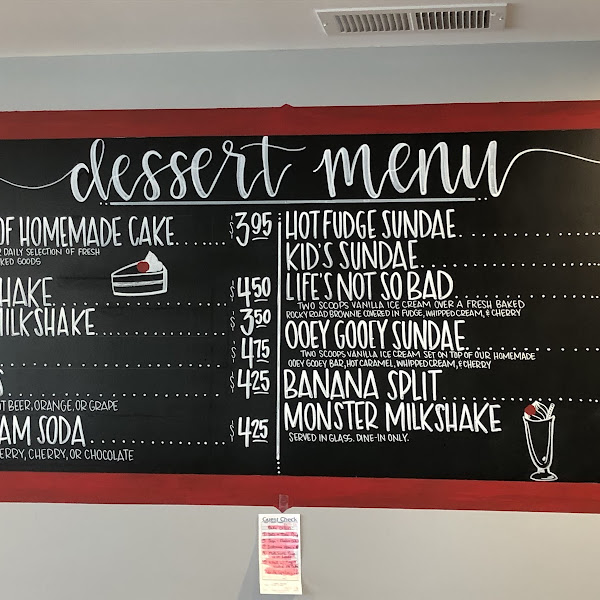 dessert menu
OF HOMEMADE CAKE....... $3.95
DAILY SELECTION OF FRESH
KED GOODS
HAKE $4.50
MILKSHAKE $3.50
$4.75
S $4.25
T BEER, ORANGE, OR GRAPE
AM SODA $4.25
ERRY, CHERRY, OR CHOCOLATE
HOT FUDGE SUNDAE
KID'S SUNDAE
LIFE'S NOT SO BAD
TWO SCOOPS VANILLA ICE CREAM OVER A FRESH BAKED
ROCKY ROAD BROWNIE COVERED IN FUDGE, WHIPPED CREAM, & CHERRY
OOEY GOOEY SUNDAE
TWO SCOOPS VANILLA ICE CREAM SET ON TOP OF OUR HOMEMADE
OOEY GOOEY BAR, HOT CARAMEL, WHIPPED CREAM, & CHERRY
BANANA SPLIT
MONSTER MILKSHAKE
SERVED IN GLASS. DINE-IN ONLY.
Guest Check